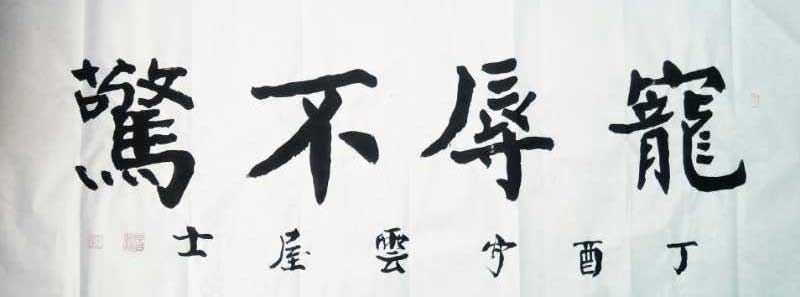 寵辱不驚
丁酉雲屋士